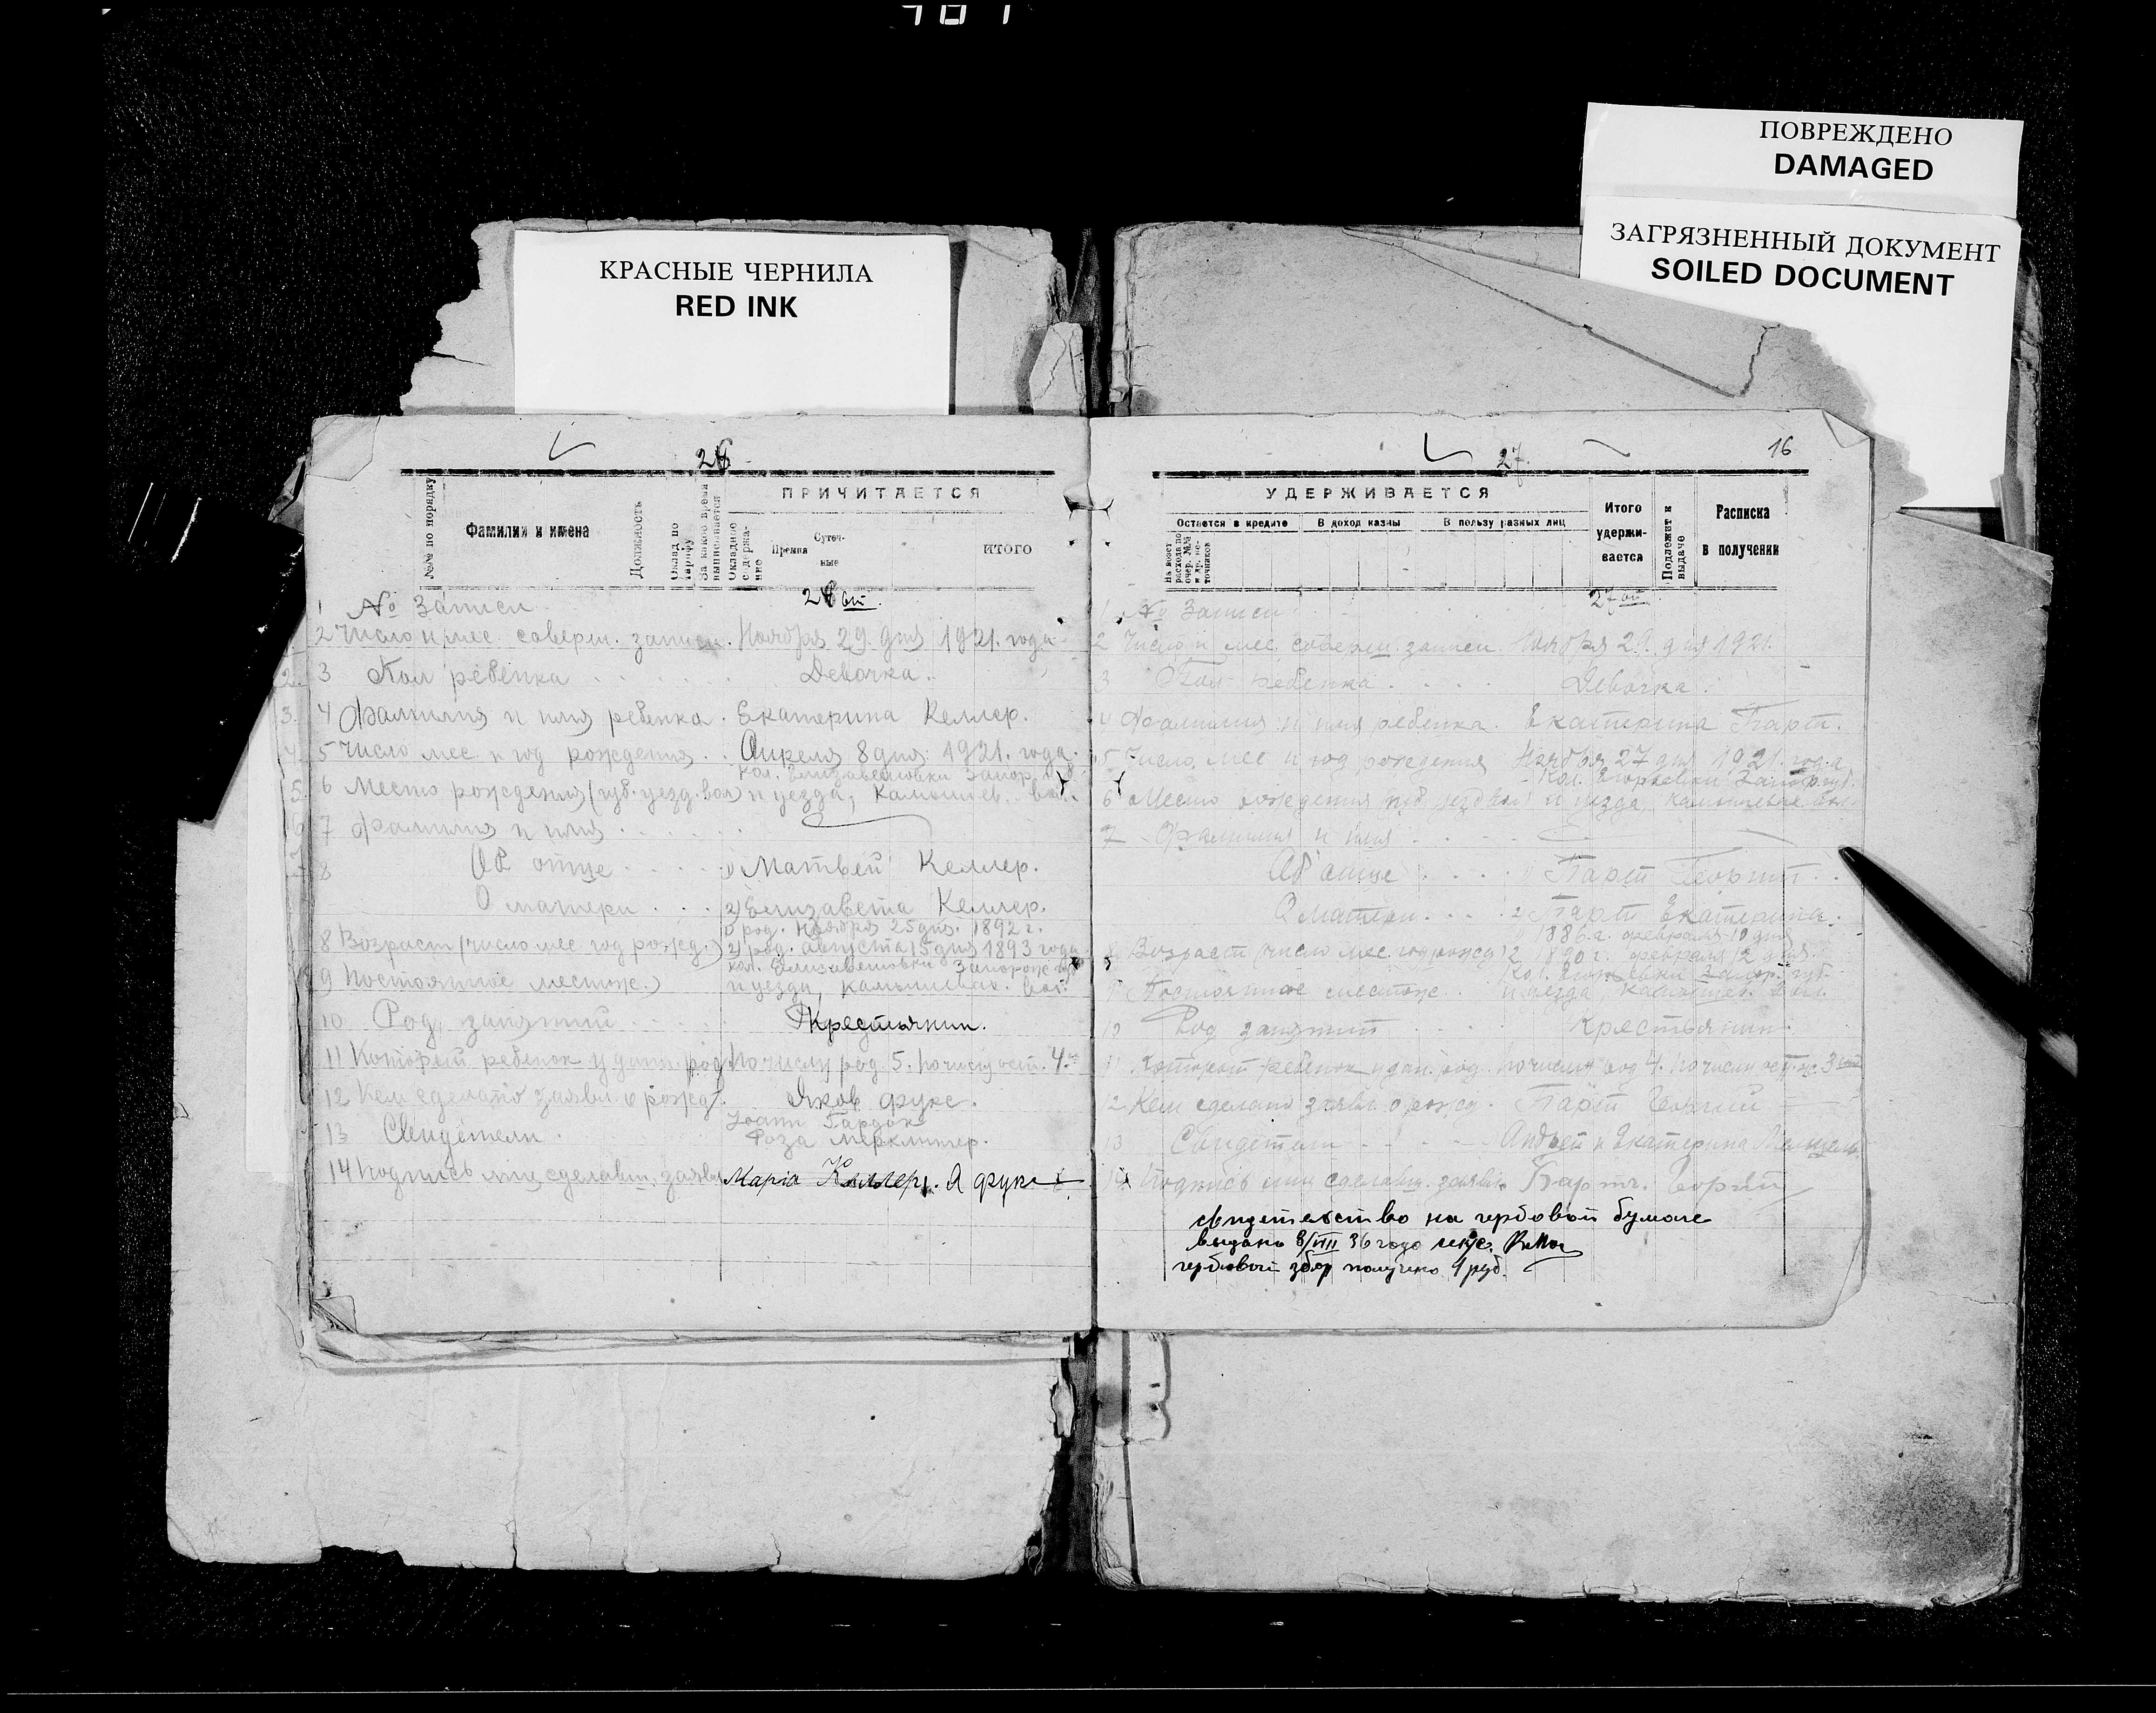 ПОВРЕЖДЕНО
DAMAGED
ЗАГРЯЗНЕННЫЙ ДОКУМЕНТ
SOILED DOCUMENT
КРАСНЫЕ ЧЕРНИЛА
RED INK
26
№№ по порядку
Фамилии и имена
Должность
Оклад по тарифу
За какое время выписывается
ПРИЧИТАЕТСЯ
Окладное содержание
Премия
Суточные
ИТОГО
26 ой.
1 № Записи
2 Число и мес. соверш. записи. Ноября 29. дня 1921. года
3 Пол ребенка Девочка.
4 Фамилия и имя ребенка. Екатерина Келлер.
5 Число мес. и год рождения. Апреля 8 дня 1921. года.
Кол. Елизаветовки Запор. губ.
6 Место рождения (губ. уезд. вол) и уезда, Камышев. вол.
7 Фамилия и имя
8 Об отце 1) Матвей Келлер.
О матери 2) Елизавета Келлер.
1) род. Ноября 25 дня. 1892 г.
8 Возраст (число мес год рожд.) 2) род. августа 15 дня 1893 года
кол. Елизаветовки Запорож. губ
9 Постоянное местож.) и уезда, Камышевах. вол.
10 Род занятий Крестьянин.
11 Который ребенок у дан. род. По числу род. 5. по числу ост. 4.
12 Кем сделано заявл о рожд. Яков Фукс.
13 Свидетели. Роза Мерклингер.
14 Подпись лиц сделавш. заявл Марiа Келлер. Я Фукс
27.
16
УДЕРЖИВАЕТСЯ
Остается в кредите
В доход казны
В пользу разных лиц
Итого удерживается
Подлежит к выдаче
Расписка в получении
27 ой
1 № Записи
2 Число и мес. соверш. записи. Ноября 29. дня 1921.
3 Пол ребенка Девочка.
4 Фамилия и имя ребенка. Екатерина Барт.
5 Число, мес и год рождения Ноября 27 дня 1921. года
Кол. Запор. губ.
6 Место рождения губ уезд вол и уезда, Камышевах. вол.
7 Фамилия и имя
Об отце 1) Барт Георгий.
О матери 2 Барт Екатерина.
1) 1886. г. февраля 10 дня
8 Возраст (число мес. год рожд) 2 1890 г. февраля 12 дня.
Кол. Запор. губ.
9 Постоянное местож. и уезда, Камышев. вол.
10 Род занятий Крестьянин.
11 Который ребенок у дан. род. по числу род 4. по числу ост. 3
12 Кем сделано заявл о рожд. Барт Георгий
13 Свидетели Андрей и Екатерина
14 Подпись лиц сделавш. заявл. Барт. Георгий
свидетельство на гербовой бумаге
выдано 8/VIII 36 года
гербовый збор получено 1 руб.